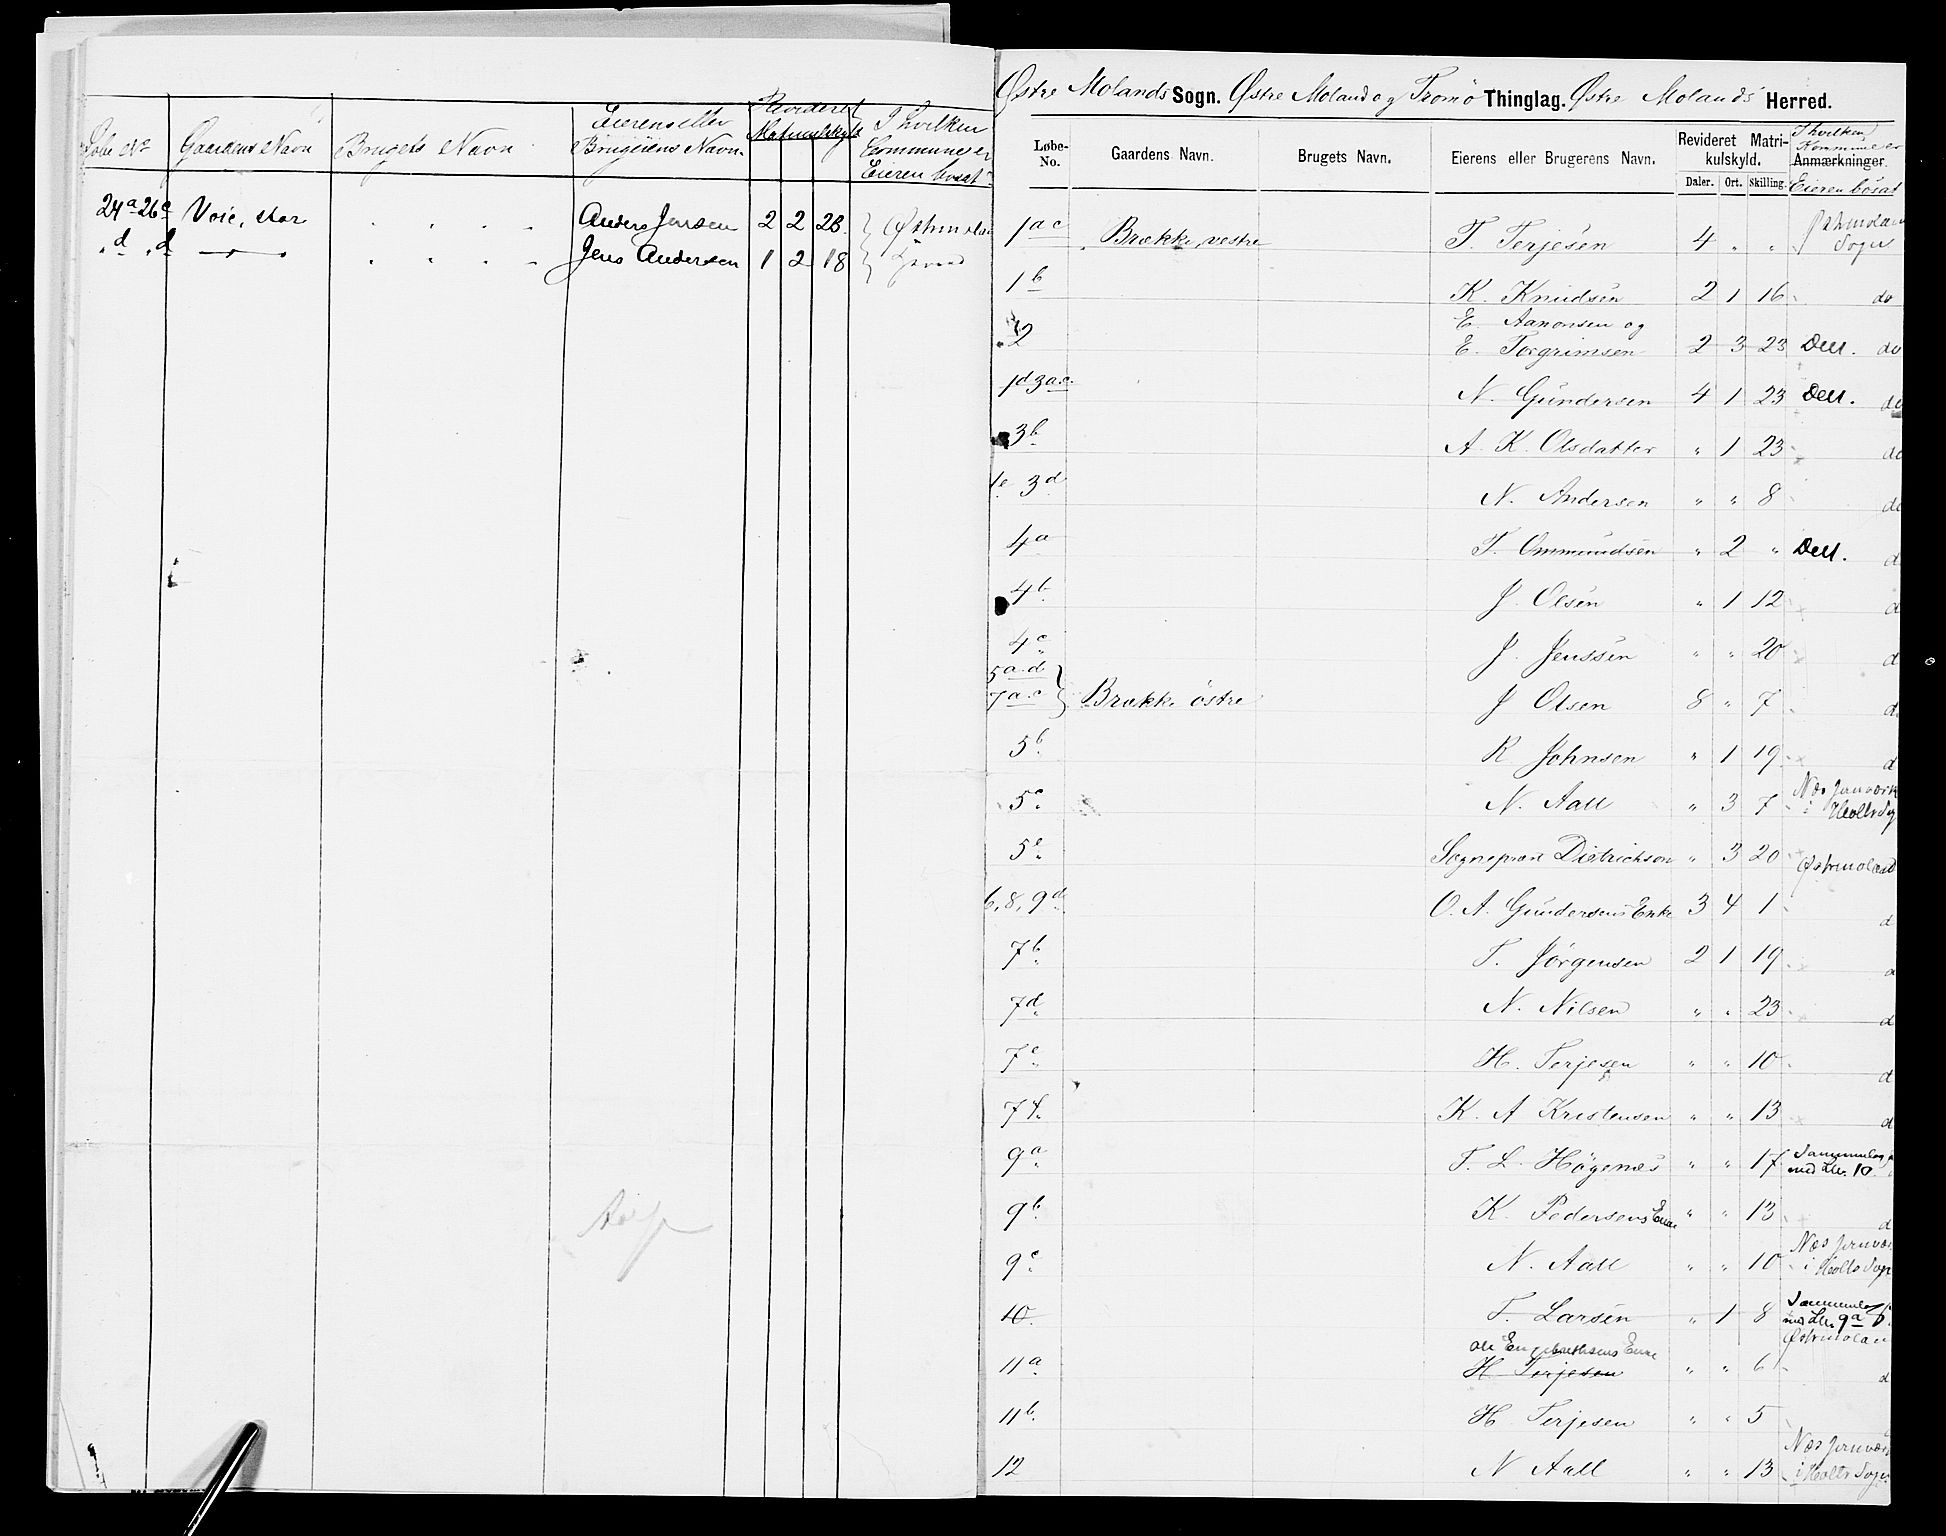 Løbe No Gaardens Navn Brugets Navn Eierens eller Brugerens Navn. Revideret Matrulskyld I hvilken Commune er Eieren bosat
24a 26c Voie, stor Anders Jensen 2 2 28.
" d " d — Jens Andersen 1 2 18
Østre Molands Sogn. Østre Moland og Tromø Thinglag. Østre Molands Herred.
Løbe-No. Gaardens Navn. Brugets Navn. Eierens eller Brugerens Navn. Revideret Matrikulskyld. Daler. Ort. Skilling. I hvilken Kommune er Anmærkninger. Eieren bosat
1 a c Brække, vestre T. Terjesen 4 " " Sogn
1 b K. Knudsen 2 1 16 do
2 E. Aanonsen og
E. Torgrimsen 2 3 23 Dell. do
1d 3a.c. N. Gundersen 4 1 23 Dell. do
3 b A. K. Olsdatter " 1 23 do
1e 3d N. Andersen " " 8 do
4 a T. Ommundsen " 2 " Dell. d
4 b. J. Olsen " 1 12 d
4 c J. Jenssen " " 20 d
5 a.d
7 a.c Brække østre J Olsen 8 " 7 d
5 b. R Johnsen " 1 19 d
5 c. N. Aall " 3 7 Næs Jernværk i Holts Sog
5 e. Sogneprest Dietrichson " 3 20 Østmoland
6, 8, 9 d. O. A. Gundersens Enke 3 4 1 d
7 b T. Jørgensen 2 1 19 d
7 d. N. Nilsen " " 23 d
7 e. H. Terjesen " " 10 d
7 f. K. A Kristensen " " 13 d
9 a T. L. Høgenæs " " 17 Sammenlag
med Lbr. 10
9 b. K. Pedersens Enke " " 13 d
9 c. N. Aall " " 10 Næs Jernvær i Holts Sogn
10. T. Larsen " 1 8 Sammenlag
med Lbr. 9a
Østmolan
Ole Engebrethsens Enke
11 a. H. Terjesen " " 6 d
11 b. H. Terjesen " " 5
12 N Aall " " 13 Næs Jernværk i Holts Sogn